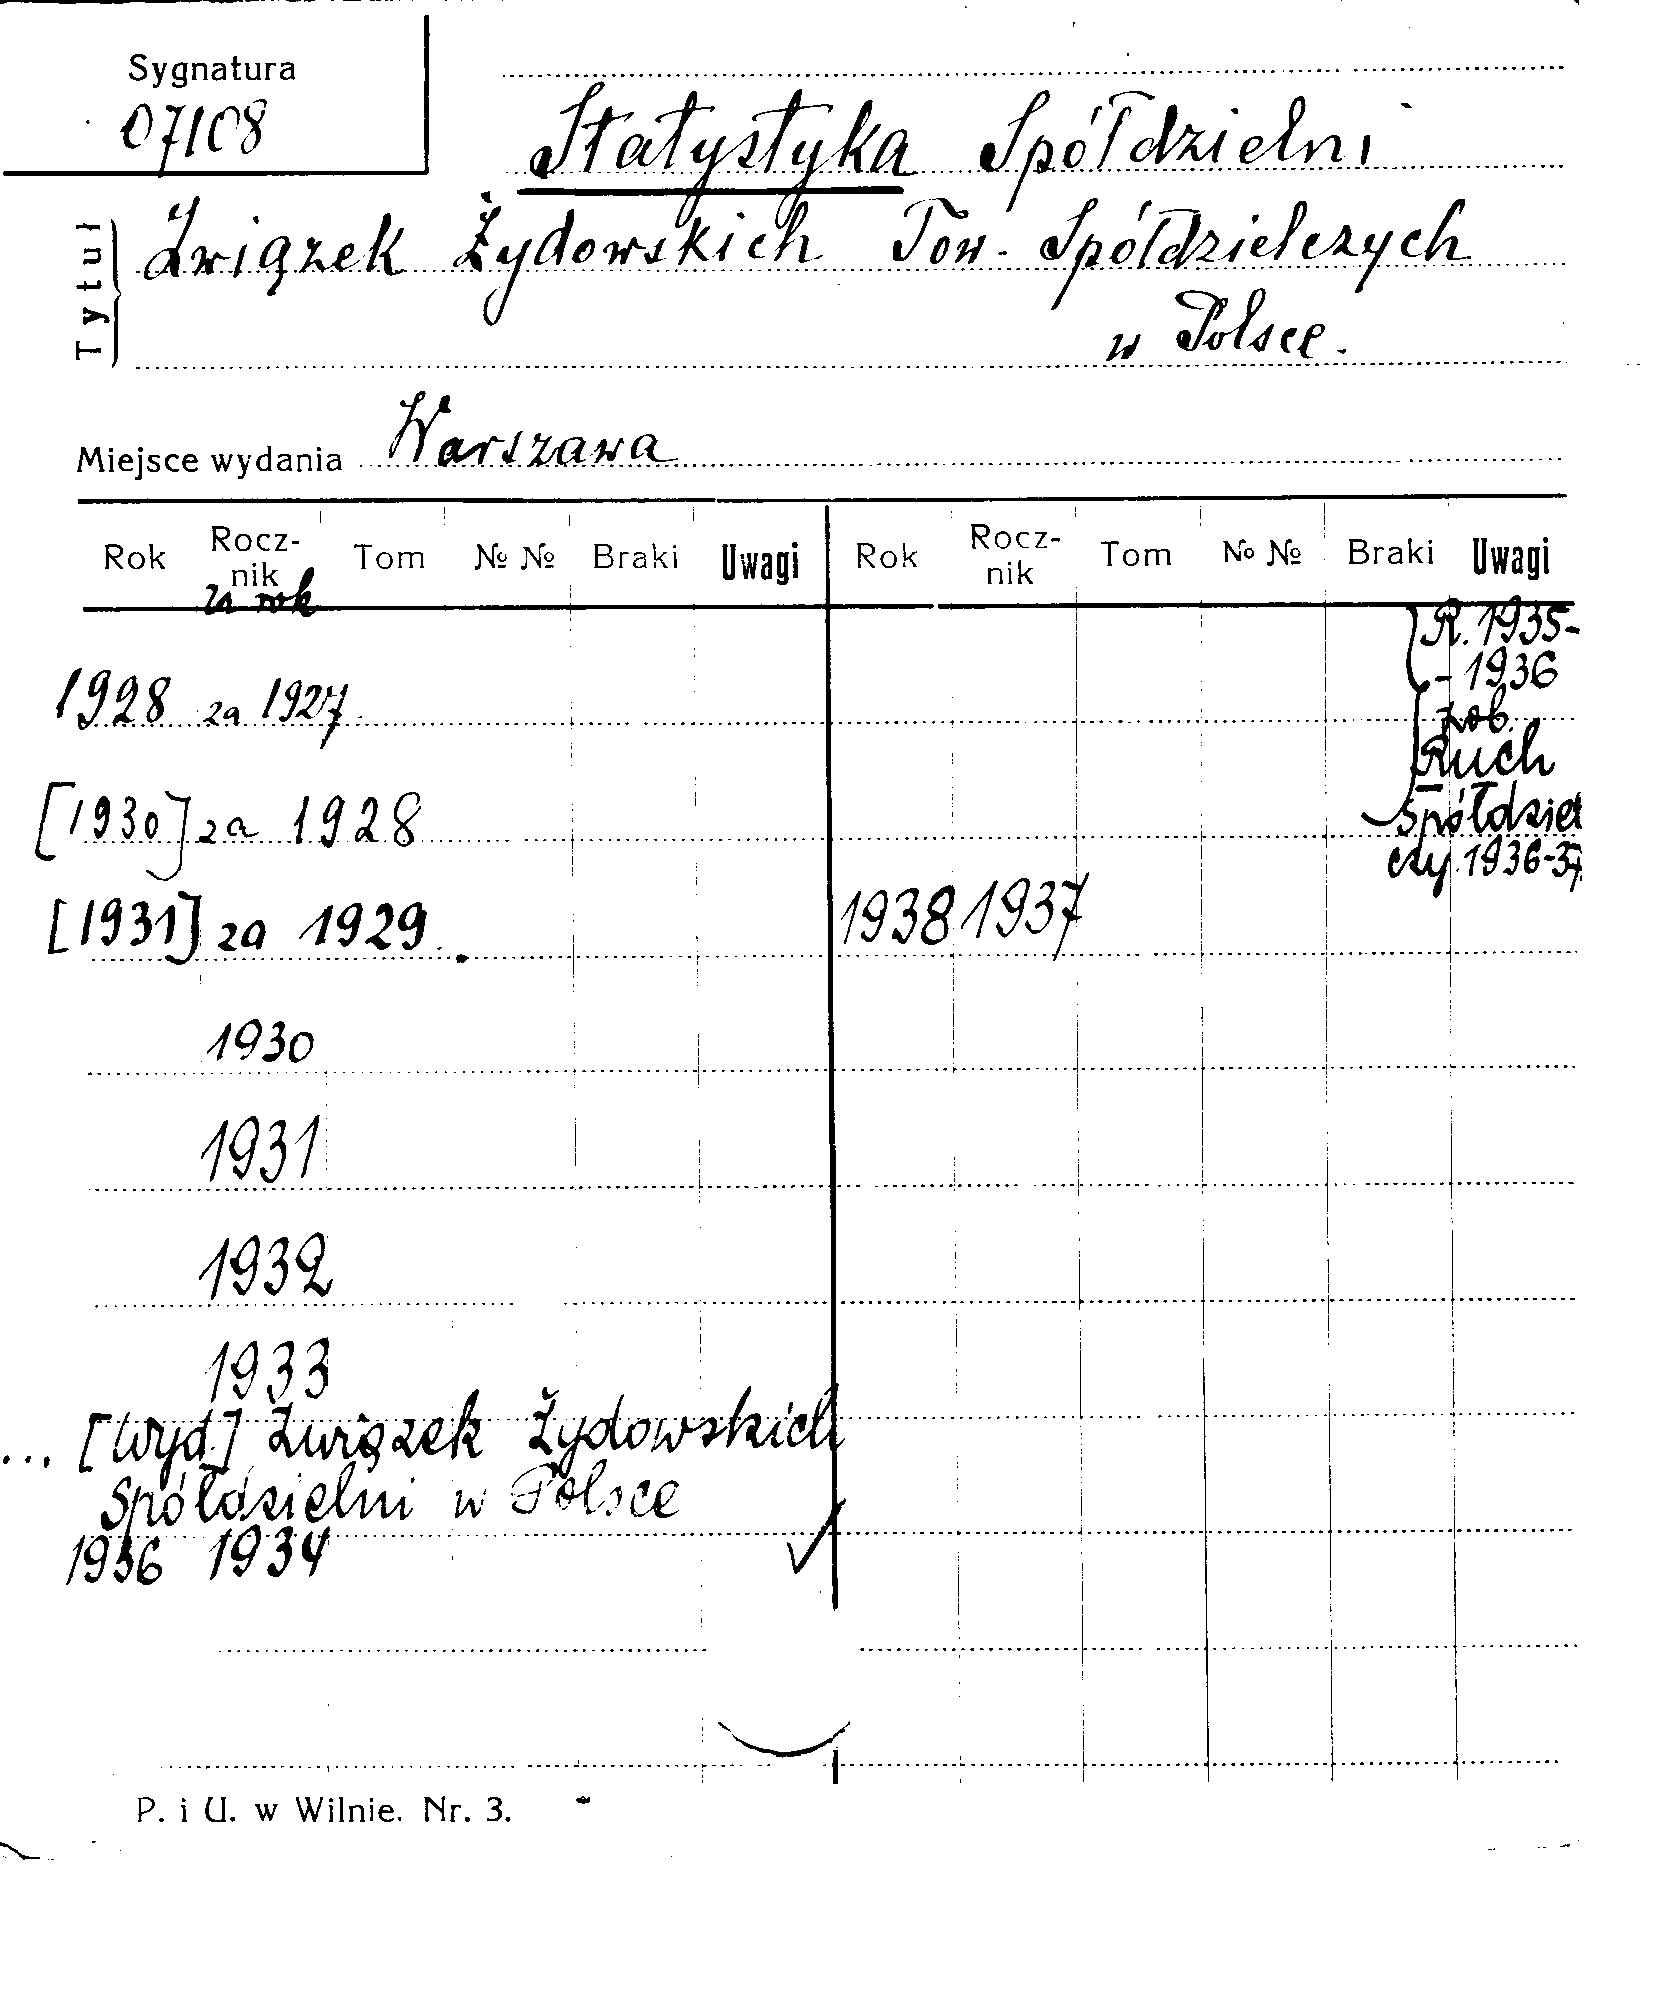 Sygnatura
07108
Statystyka Spółdzielni
Tytuł
Związek Żydowskich Tow. Spółdzielczych
w Polsce.
Miejsce wydania Warszawa
Rok Rocz-nik Tom № № Braki Uwagi Rok Rocz-nik Tom № № Braki Uwagi
za rok
R. 1935-
- 1936
1928 za 1927
zob.
Ruch
[1930] za 1928
Spółdziel
czy 1936-37
[1931] za 1929
1938 1937
1930
1931
1932
1933
... [Wyd.] Związek Żydowskich
Spółdzielni w Polsce
1936 1934
P. i U. w Wilnie. Nr. 3.